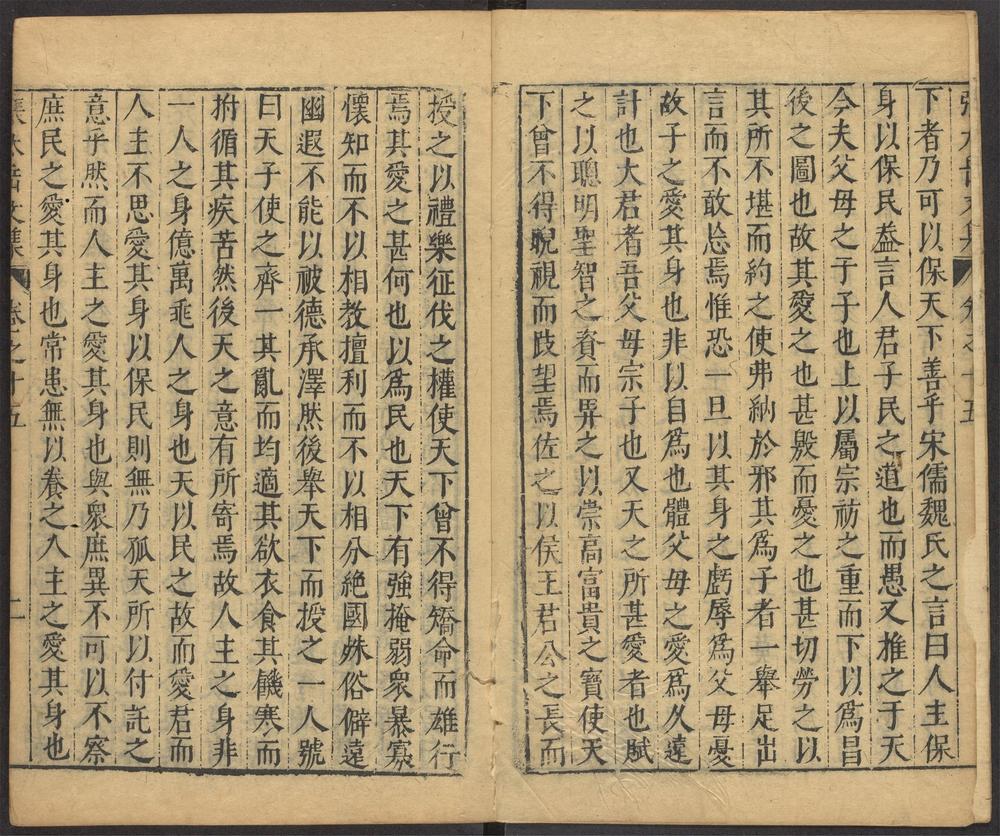 下者乃可以保天下善乎宋儒魏氏之言曰人主保
身以保民葢言人君子民之道也而愚又推之于天
今夫父母之于子也上以屬宗祊之重而下以爲昌
後之圖也故其愛之也甚殷而憂之也甚切勞之以
其所不堪而約之使弗納於邪其爲子者一舉足出
言而不敢忘焉惟恐一旦以其身之虧辱爲父母憂
故子之愛其身也非以自爲也體父母之愛爲久遠
計也大君者吾父母宗子也又天之所甚愛者也賦
之以聰明聖智之資而畀之以崇高富貴之寶使天
下曾不得睨視而跂望焉佐之以侯王君公之長而
授之以禮樂征伐之權使天下曾不得矯命而雄行
焉其愛之甚何也以爲民也天下有強掩弱衆暴寡
懷知而不以相教擅利而不以相分絶國姝俗僻遠
幽遐不能以被德承澤然後舉天下而授之一人號
曰天子使之齊一其亂而均適其欲衣食其饑寒而
拊循其疾苦然後天之意有所寄焉故人主之身非
一人之身億萬乖人之身也天以民之故而愛君而
人主不思愛其身以保民則無乃孤天所以付託之
意乎然而人主之愛其身也與衆庶異不可以不察
庶民之愛其身也常患無以養之人主之愛其身也
卷之十五
二